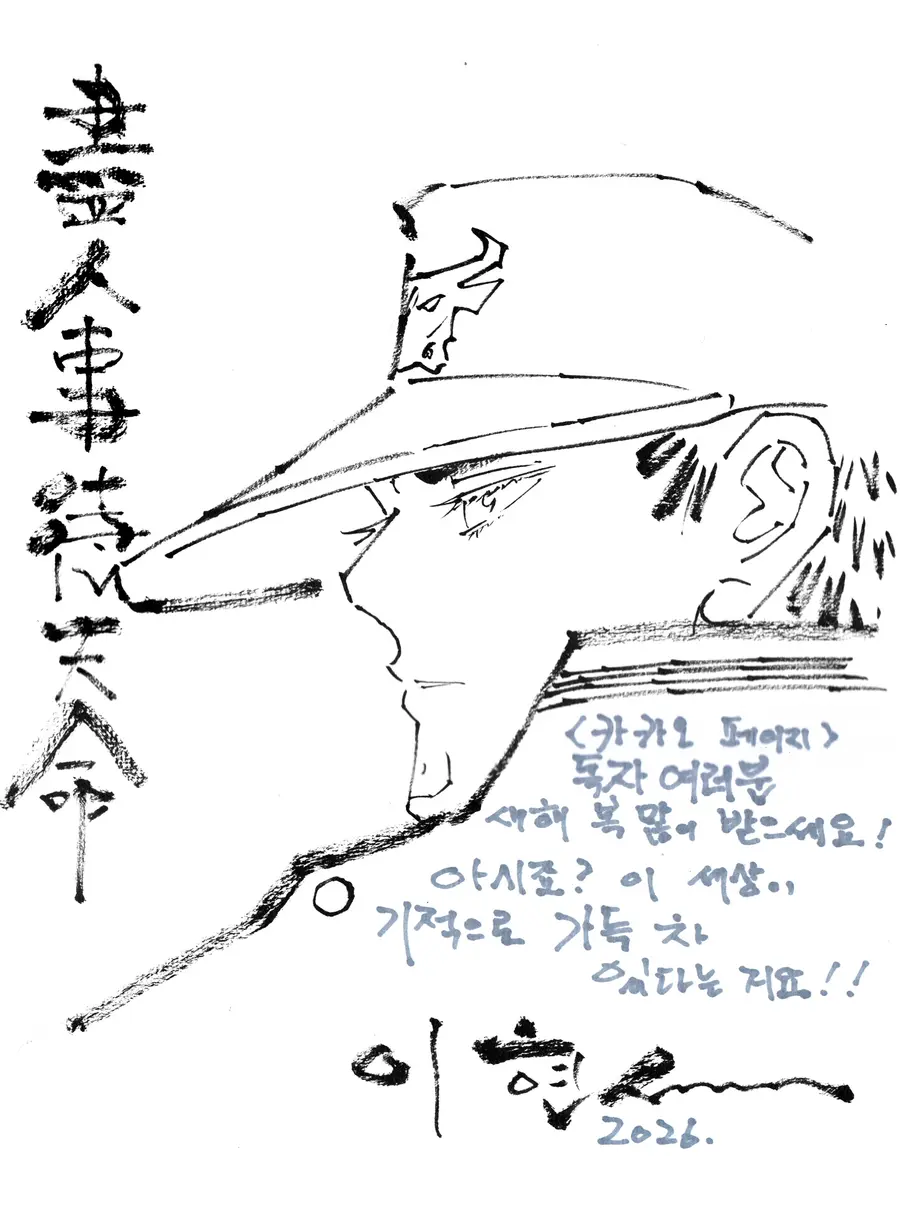 盡人事待天命
<카카오 페이지>
독자 여러분
새해 복 많이 받으세요!
아시죠? 이 세상이
기적으로 가득 차
있다는 지요!!
이현세
2026.